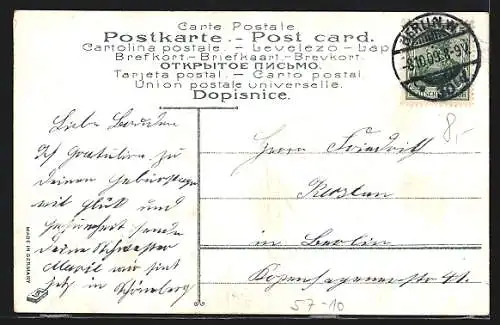 Carte Postale
Postkarte.- Post card.
Cartolina postale. - Levelezo - Lap
Brefkort.- Briefkaart.- Brevkort.
ОТКРЫТОЕ ПИСЬМО.
Tarjeta postal. - Carto postal
Union postale universelle.
Dopisnice.
BERLIN W
8.-
Liebe Bruder
Ich gratulire zu
deinen Geburtstage
mit Glük und
Gesundheit sende
deine Schwester
Marie wir sint
jetz in Schöneberg
Herrn Friedrich
in Berlin
Kopenhagenerstr 41.
57-10
MADE IN GERMANY